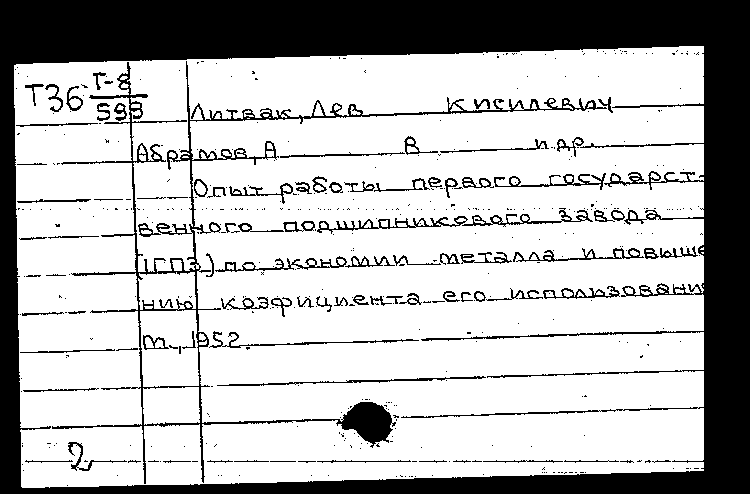 Т36 Т-8
598
Литвак, Лев Кисилевич
Абрамов, А В и др.
Опыт работы первого государст-
венного подшипникового завода
(1ГПЗ) по экономии металла и повыше
нию коэфициента его использовани
м., 1952.
2